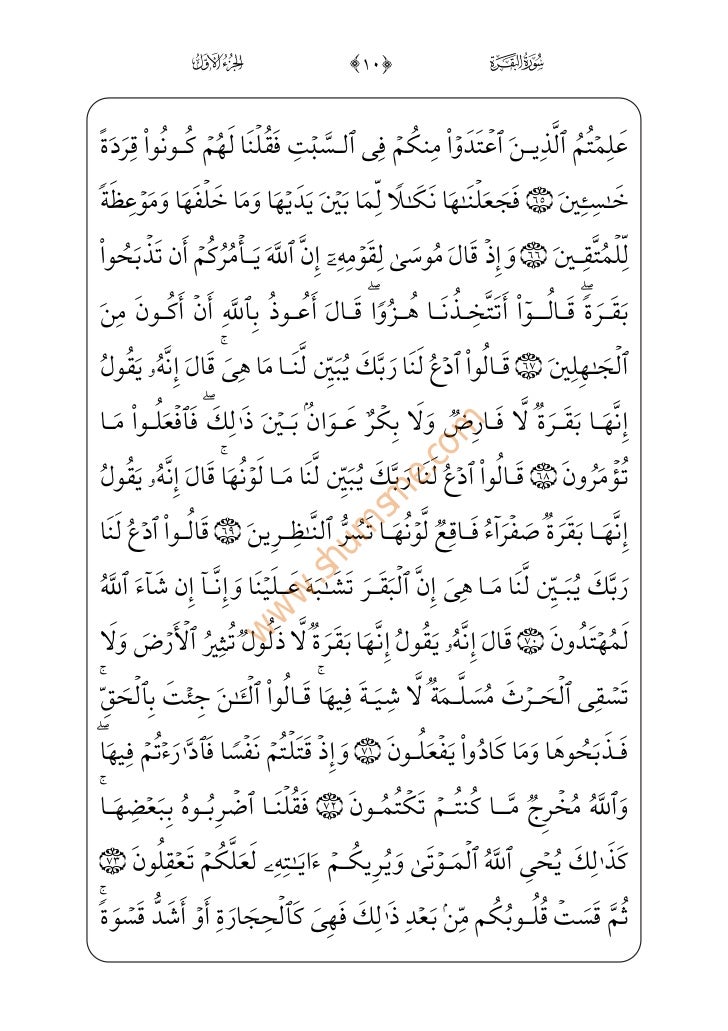 سُورَةُ البَقَرَةِ ﴿١٠﴾ الجُزءُ الأَوَّلُ
عَلِمْتُمُ ٱلَّذِينَ ٱعْتَدَوْا۟ مِنكُمْ فِى ٱلسَّبْتِ فَقُلْنَا لَهُمْ كُونُوا۟ قِرَدَةً
خَٰسِـِٔينَ ٦٥ فَجَعَلْنَٰهَا نَكَٰلًا لِّمَا بَيْنَ يَدَيْهَا وَمَا خَلْفَهَا وَمَوْعِظَةً
لِّلْمُتَّقِينَ ٦٦ وَإِذْ قَالَ مُوسَىٰ لِقَوْمِهِۦٓ إِنَّ ٱللَّهَ يَأْمُرُكُمْ أَن تَذْبَحُوا۟
بَقَرَةًۖ قَالُوٓا۟ أَتَتَّخِذُنَا هُزُوًاۖ قَالَ أَعُوذُ بِٱللَّهِ أَنْ أَكُونَ مِنَ
ٱلْجَٰهِلِينَ ٦٧ قَالُوا۟ ٱدْعُ لَنَا رَبَّكَ يُبَيِّن لَّنَا مَا هِىَۚ قَالَ إِنَّهُۥ يَقُولُ
إِنَّهَا بَقَرَةٌ لَّا فَارِضٌ وَلَا بِكْرٌ عَوَانٌۢ بَيْنَ ذَٰلِكَۖ فَٱفْعَلُوا۟ مَا
تُؤْمَرُونَ ٦٨ قَالُوا۟ ٱدْعُ لَنَا رَبَّكَ يُبَيِّن لَّنَا مَا لَوْنُهَاۚ قَالَ إِنَّهُۥ يَقُولُ
إِنَّهَا بَقَرَةٌ صَفْرَآءُ فَاقِعٌ لَّوْنُهَا تَسُرُّ ٱلنَّٰظِرِينَ ٦٩ قَالُوا۟ ٱدْعُ لَنَا
رَبَّكَ يُبَيِّن لَّنَا مَا هِىَ إِنَّ ٱلْبَقَرَ تَشَٰبَهَ عَلَيْنَا وَإِنَّآ إِن شَآءَ ٱللَّهُ
لَمُهْتَدُونَ ٧٠ قَالَ إِنَّهُۥ يَقُولُ إِنَّهَا بَقَرَةٌ لَّا ذَلُولٌ تُثِيرُ ٱلْأَرْضَ وَلَا
تَسْقِى ٱلْحَرْثَ مُسَلَّمَةٌ لَّا شِيَةَ فِيهَاۚ قَالُوا۟ ٱلْـَٰٔنَ جِئْتَ بِٱلْحَقِّۚ
فَذَبَحُوهَا وَمَا كَادُوا۟ يَفْعَلُونَ ٧١ وَإِذْ قَتَلْتُمْ نَفْسًا فَٱدَّٰرَْٰٔتُمْ فِيهَاۖ
وَٱللَّهُ مُخْرِجٌ مَّا كُنتُمْ تَكْتُمُونَ ٧٢ فَقُلْنَا ٱضْرِبُوهُ بِبَعْضِهَاۚ
كَذَٰلِكَ يُحْىِ ٱللَّهُ ٱلْمَوْتَىٰ وَيُرِيكُمْ ءَايَٰتِهِۦ لَعَلَّكُمْ تَعْقِلُونَ ٧٣
ثُمَّ قَسَتْ قُلُوبُكُم مِّنۢ بَعْدِ ذَٰلِكَ فَهِىَ كَٱلْحِجَارَةِ أَوْ أَشَدُّ قَسْوَةًۚ
www.shumsme.com